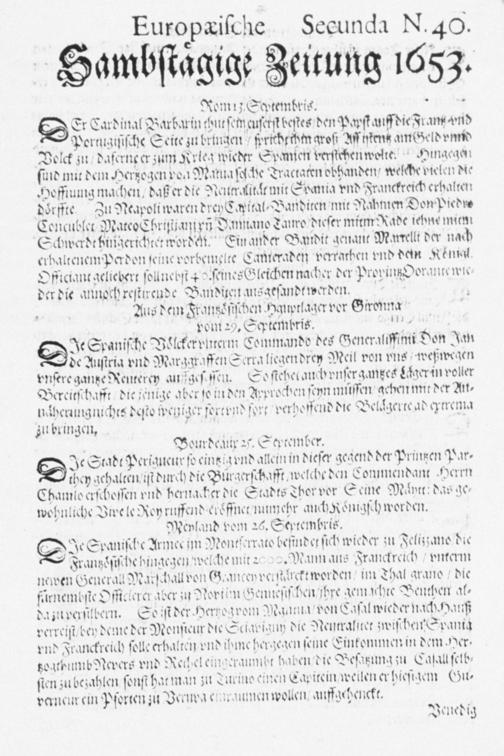 Europæische Secunda N. 40.
Sambstägige Zeitung 1653.
Rom 13. Septembris.
DEr Cardinal Barbarin thut sein euserst bestes / den Papst auff die Frantz- vnd
Portugisische Seite zu bringen / spricht ihm groß Assistentz am Geld vnnd
Volck zu / daferne er zum Krieg wieder Spanien verstehen wolte. Hingegen
sind mit dem Hertzogen von Mantua solche Tractaten obhanden / welche vielen die
Hoffnung machen / daß er die Neutralität mit Spania vnd Franckreich erhalten
dörffte Zu Neapoli waren drey Capital-Banditen mit Nahmen Don Piedro
Mateo Christiani vñ Damiano Tauro / dieser mit m Rade jehne mit m
Schwerdt hingerichtet worden. Ein ander Bandit genant Martelli der nach
erhaltenem Perdon seine vorbemelte Cameraden verrathen vnd dem Königl.
Officianten geliebert soll nebst 40. seines Gleichen nacher der Provintz Otranto wie-
der die annoch restirende Banditen ausgesandt werden.
Aus dem Frantzösischen Hauptlager vor Gironna
vom 29. Septembris.
DIe Spanische Völcker vnterm Commando des Generalissimi Don Jan
de Austria vnd Marggraffen Serra liegen drey Meil von vns / weßwegen
vnsere gantze Reuterey auffgesessen. So stehet auch vnser gantzes Läger in voller
Bereitschafft / die jenige aber so in den Approchen seyn müssen / gehen mit der An-
näherung nichts desto weniger fort vnd fort / verhoffend die Belägerte ad extrema
zu bringen.
Bourdeaux 25. September.
DIe Stadt Perigueux so eintzig vnd allein in dieser gegend der Printzen Par-
they gehalten / ist durch die Bürgerschafft / welche den Commendant Herrn
Chanilo erschossen vnd hernacher die Stadts Thor vor Seine Mäytt: das ge-
wöhnliche Vive le Roy ruffend eröffnet nunmehr auch Königsch worden.
Meyland vom 26. Septembris.
DIe Spanische Armee im Montferrato befindet sich wieder zu Felizano die
Frantzösische hingegen / welche mit 2000. Mann aus Franckreich / vnterm
newen Generall Marschall von Grancey verstärckt worden / im Thal grano / die
fürnembste Officierer aber zu Novi im Genuesischen / ihre gemachte Beuthen al-
da zu versilbern. So ist der Hertzog von Mantua / von Casal wieder nach Hauß
verreist / bey deme der Monsieur die Neutralitet zwischen Spania
vnd Franckreich solle erhalten vnd ihme hergegen seine Einkommen in dem Her-
tzogthumb Nevers vnd Rethel eingeraumbt haben / die Besatzung zu Casall selb-
sten zu bezahlen sonst hat man zu Turino einen Capitein / weilen er hiesigem Gu-
verneur ein Pforten zu Verrua einraumen wollen / auffgehenckt.
Venedig